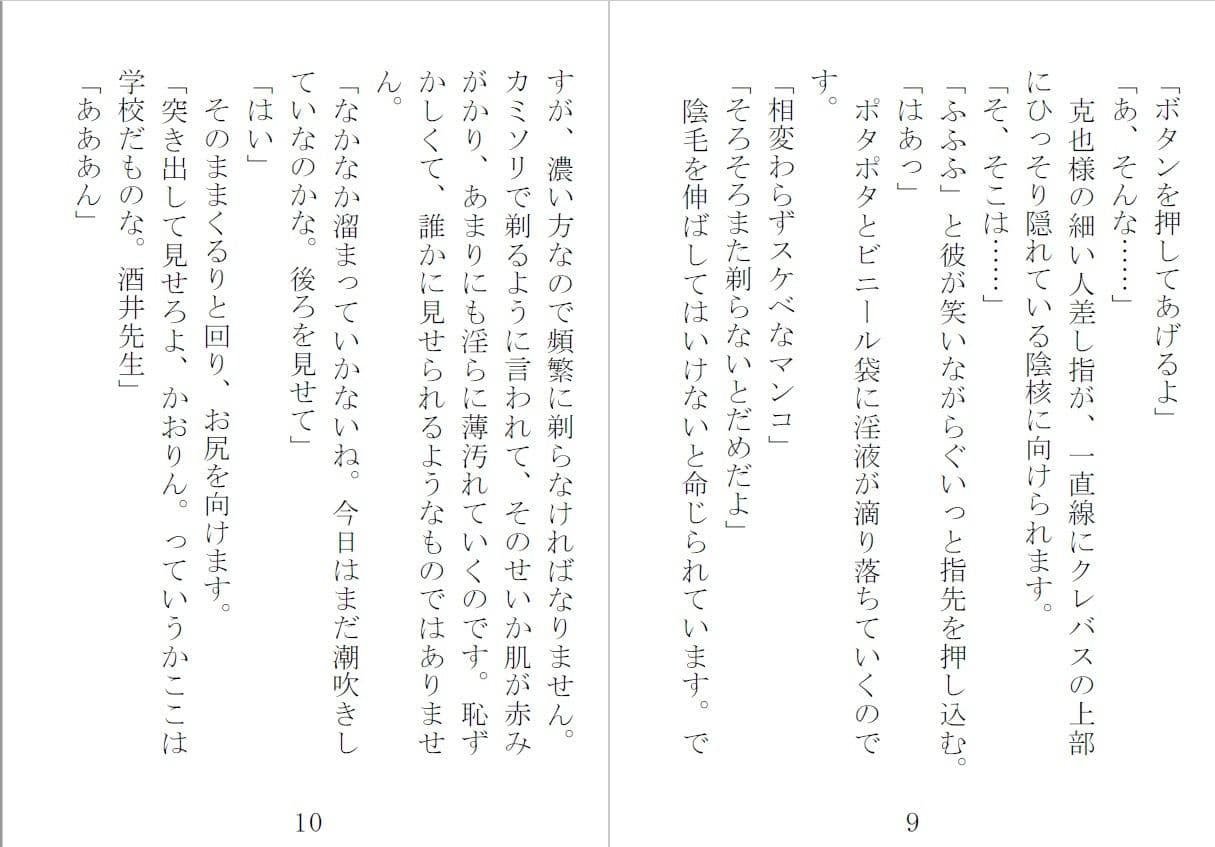 「ボタンを押してあげるよ」
「あ、そんな……」
　克也様の細い人差し指が、一直線にクレバスの上部
にひっそり隠れている陰核に向けられます。
「そ、そこは……」
「ふふふ」と彼が笑いながらぐいっと指先を押し込む。
「はあっ」
　ポタポタとビニール袋に淫液が滴り落ちていくので
す。
「相変わらずスケベなマンコ」
「そろそろまた剃らないとだめだよ」
　陰毛を伸ばしてはいけないと命じられています。で
9
すが、濃い方なので頻繁に剃らなければなりません。
カミソリで剃るように言われて、そのせいか肌が赤み
がかり、あまりにも淫らに薄汚れていくのです。恥ず
かしくて、誰かに見せられるようなものではありませ
ん。
「なかなか溜まっていかないね。今日はまだ潮吹きし
ていなのかな。後ろを見せて」
「はい」
　そのままくるりと回り、お尻を向けます。
「突き出して見せろよ、かおりん。っていうかここは
学校だものな。酒井先生」
「あああん」
10